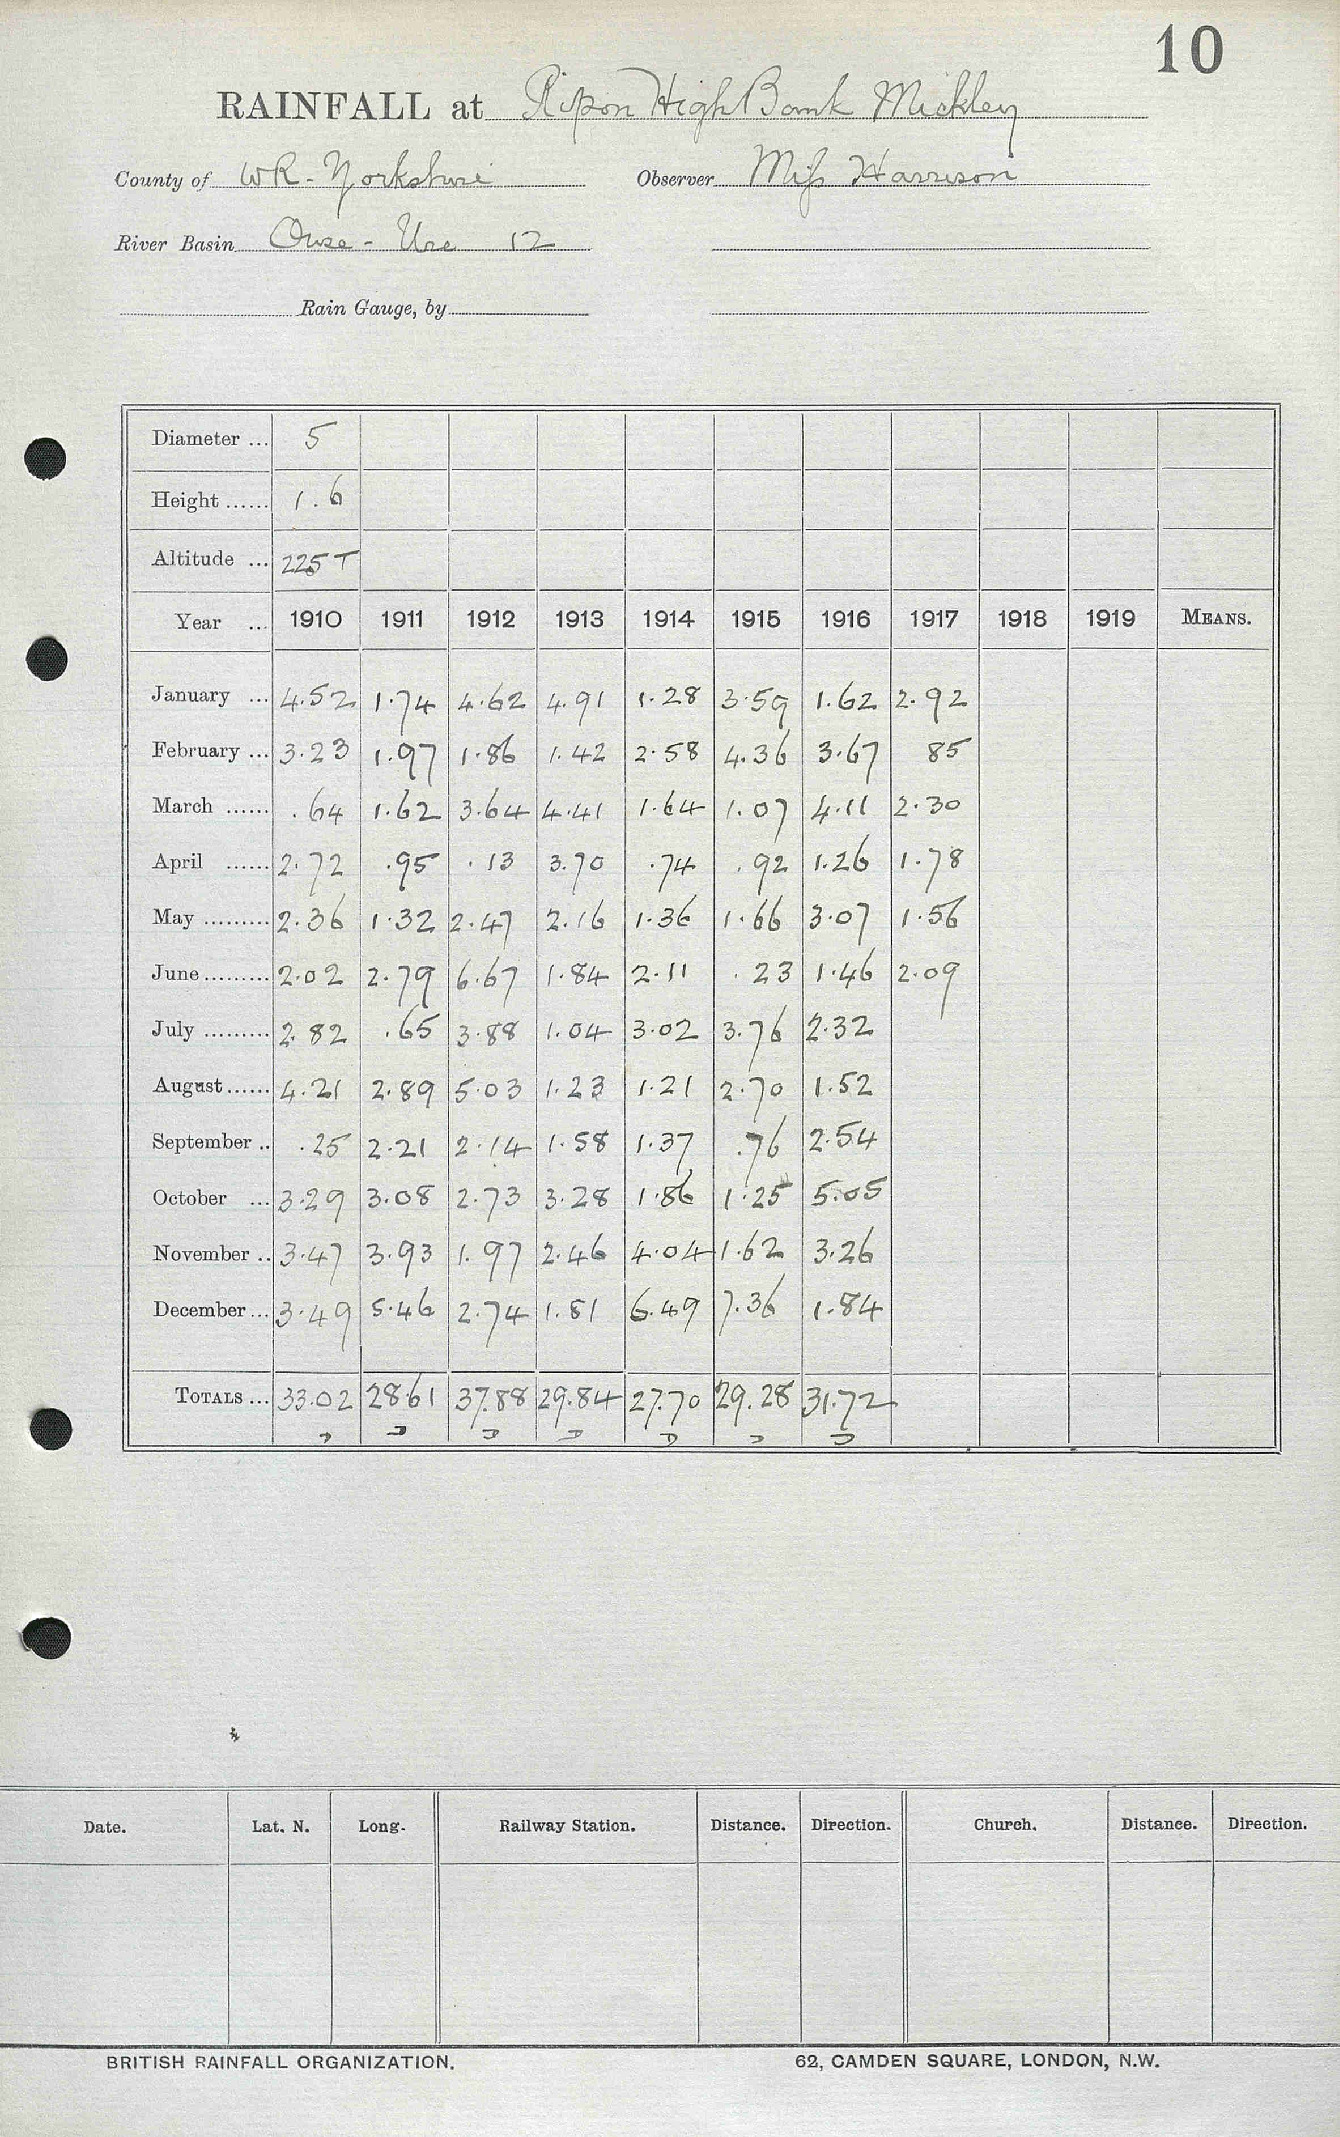 10
RAINFALL at Ripon High Bank Mickley
County of WR - Yorkshire Observer Miss Harrison
River Basin Ouse - Ure 12
Rain Gauge, by
Diameter ... 5
Height ...... 1.6
Altitude ... 225 T
Year ... 1910 1911 1912 1913 1914 1915 1916 1917 1918 1919 MEANS.
January ... 4.52 1.74 4.62 4.91 1.28 3.59 1.62 2.92
February ... 3.23 1.97 1.86 1.42 2.58 4.36 3.67 85
March ...... .64 1.62 3.64 4.41 1.64 1.07 4.11 2.30
April ...... 2.72 .95 .13 3.70 .74 .92 1.26 1.78
May ......... 2.36 1.32 2.47 2.16 1.36 1.66 3.07 1.56
June ......... 2.02 2.79 6.67 1.84 2.11 .23 1.46 2.09
July ......... 2.82 .65 3.88 1.04 3.02 3.76 2.32
August ...... 4.21 2.89 5.03 1.23 1.21 2.70 1.52
September .. .25 2.21 2.14 1.58 1.37 .76 2.54
October ... 3.29 3.08 2.73 3.28 1.86 1.25 5.05
November .. 3.47 3.93 1.97 2.46 4.04 1.62 3.26
December ... 3.49 5.46 2.74 1.81 6.49 7.36 1.84
TOTALS ... 33.02 28.61 37.88 29.84 27.70 29.28 31.72
Date. Lat. N. Long. Railway Station. Distance. Direction. Church. Distance. Direction.
BRITISH RAINFALL ORGANIZATION. 62, CAMDEN SQUARE, LONDON, N.W.